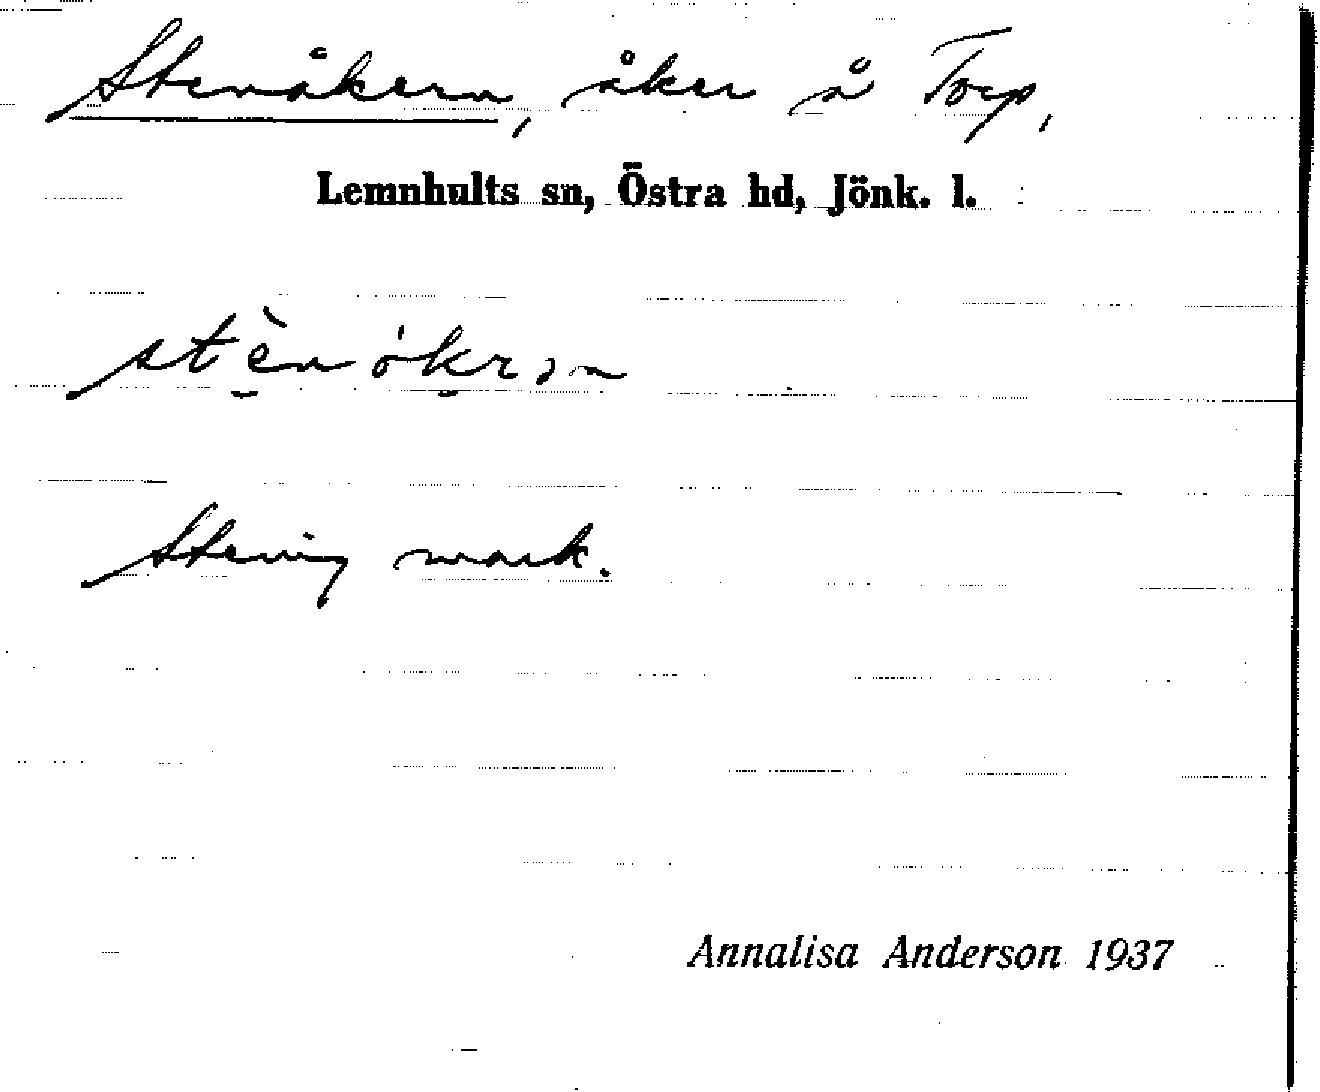 Stenåkern, åker å Torp,
Lemnhults sn, Östra hd, Jönk. l.
stènókrən
Stenig mark.
Annalisa Anderson 1937